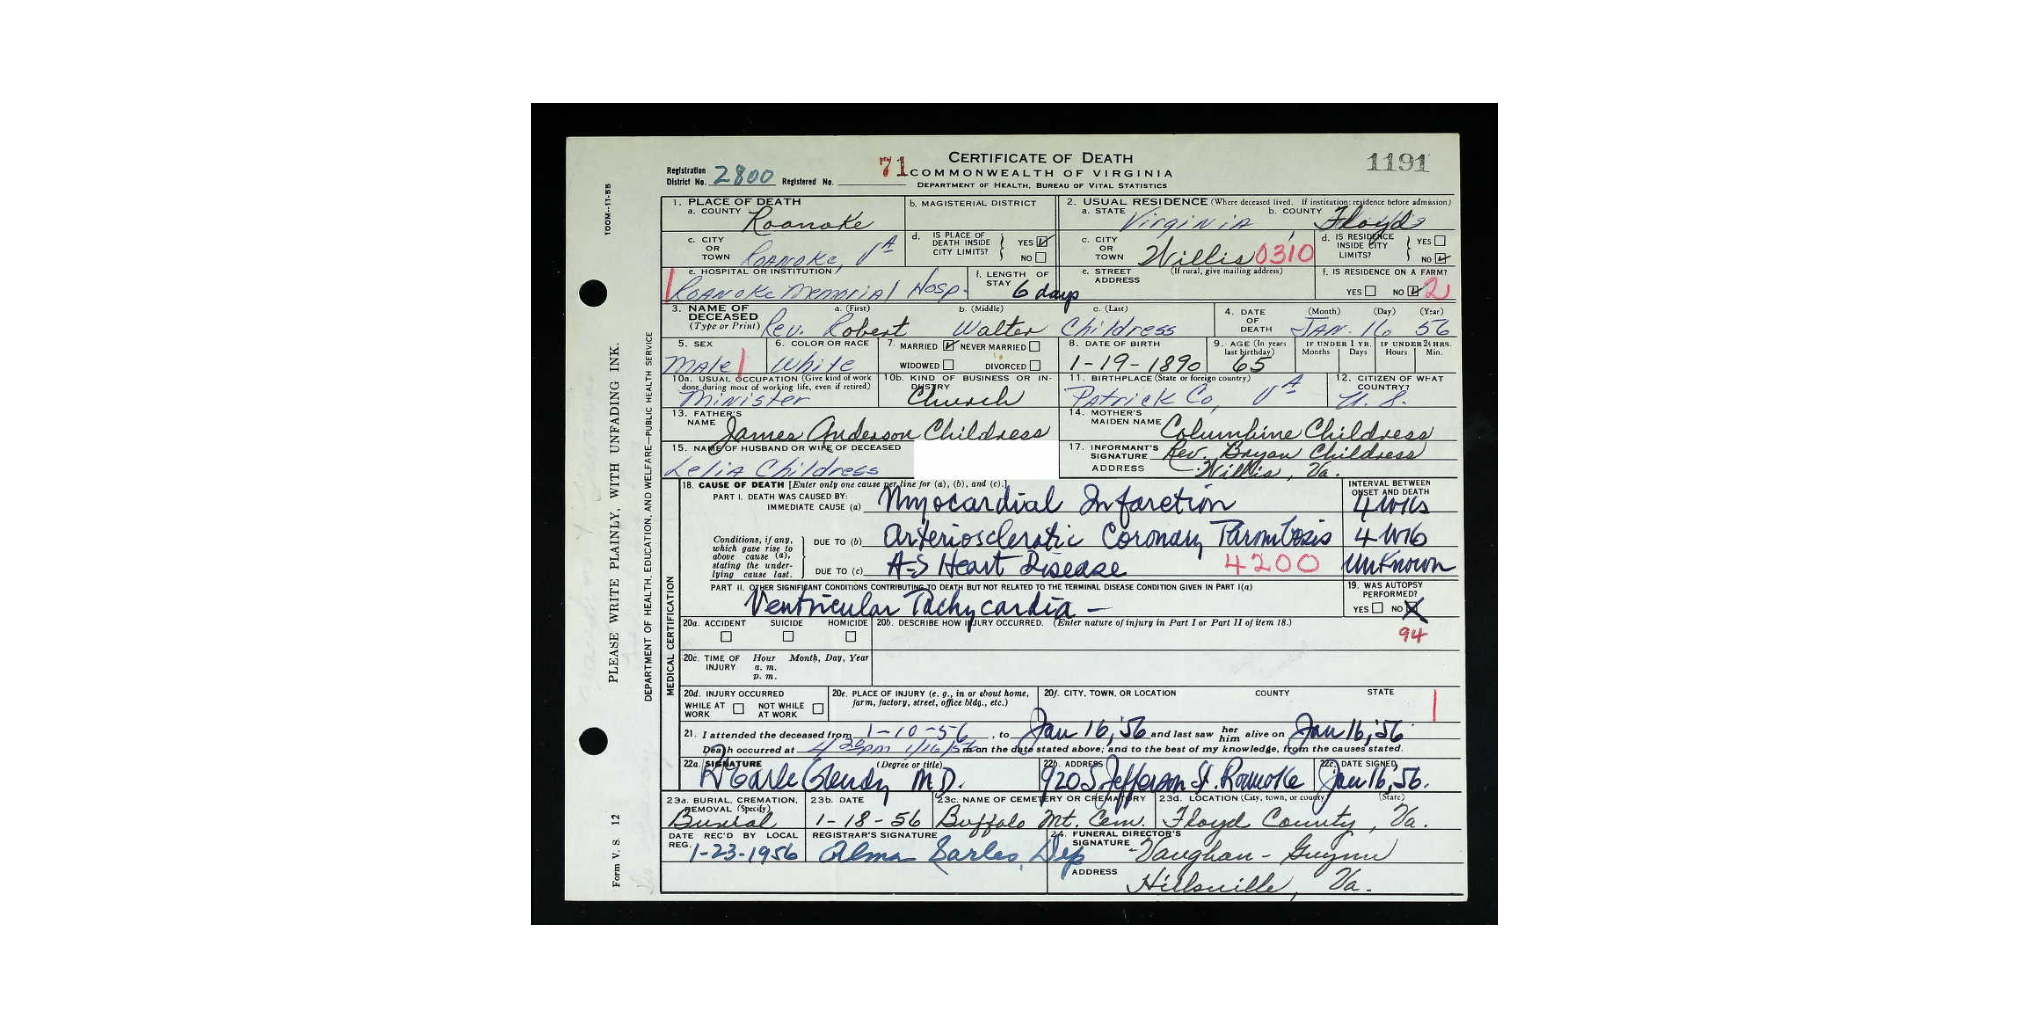 CERTIFICATE OF DEATH
COMMONWEALTH OF VIRGINIA
DEPARTMENT OF HEALTH, BUREAU OF VITAL STATISTICS
1191
Registration District No. 2800 Registered No. 71
1. PLACE OF DEATH
a. COUNTY Roanoke
b. MAGISTERIAL DISTRICT
2. USUAL RESIDENCE (Where deceased lived. If institution: residence before admission)
a. STATE Virginia b. COUNTY Floyd
c. CITY OR TOWN Roanoke, VA
d. IS PLACE OF DEATH INSIDE CITY LIMITS? YES NO
c. CITY OR TOWN Willis 0310
d. IS RESIDENCE INSIDE CITY LIMITS? YES NO
e. HOSPITAL OR INSTITUTION Roanoke Memorial Hosp.
f. LENGTH OF STAY 6 days
e. STREET ADDRESS (If rural, give mailing address)
f. IS RESIDENCE ON A FARM? YES NO 2
3. NAME OF DECEASED (Type or Print) a. (First) b. (Middle) c. (Last)
Rev. Robert Walter Childress
4. DATE OF DEATH (Month) (Day) (Year)
JAN. 16 56
5. SEX Male
6. COLOR OR RACE White
7. MARRIED NEVER MARRIED
WIDOWED DIVORCED
8. DATE OF BIRTH 1-19-1890
9. AGE (In years last birthday) 65
IF UNDER 1 YR. Months Days
IF UNDER 24 HRS. Hours Min.
10a. USUAL OCCUPATION (Give kind of work done during most of working life, even if retired)
Minister
10b. KIND OF BUSINESS OR INDUSTRY
Church
11. BIRTHPLACE (State or foreign country)
Patrick Co, VA
12. CITIZEN OF WHAT COUNTRY?
U.S.
13. FATHER'S NAME James Anderson Childress
14. MOTHER'S MAIDEN NAME Columbine Childress
15. NAME OF HUSBAND OR WIFE OF DECEASED
Lelia Childress
17. INFORMANT'S SIGNATURE Rev. Bryan Childress
ADDRESS Willis, Va.
MEDICAL CERTIFICATION
18. CAUSE OF DEATH [Enter only one cause per line for (a), (b), and (c).]
INTERVAL BETWEEN ONSET AND DEATH
PART I. DEATH WAS CAUSED BY:
IMMEDIATE CAUSE (a) Myocardial Infarction 4 Wks
Conditions, if any, which gave rise to above cause (a), stating the underlying cause last.
DUE TO (b) Arteriosclerotic Coronary 4 Wks
DUE TO (c) A-S Heart Disease 4200 Unknown
PART II. OTHER SIGNIFICANT CONDITIONS CONTRIBUTING TO DEATH BUT NOT RELATED TO THE TERMINAL DISEASE CONDITION GIVEN IN PART I(a)
Ventricular Tachycardia -
19. WAS AUTOPSY PERFORMED?
YES NO
94
20a. ACCIDENT SUICIDE HOMICIDE
20b. DESCRIBE HOW INJURY OCCURRED. (Enter nature of injury in Part I or Part II of item 18.)
20c. TIME OF INJURY Hour Month, Day, Year
a. m.
p. m.
20d. INJURY OCCURRED
WHILE AT WORK NOT WHILE AT WORK
20e. PLACE OF INJURY (e. g., in or about home, farm, factory, street, office bldg., etc.)
20f. CITY, TOWN, OR LOCATION COUNTY STATE
21. I attended the deceased from 1-10-56, to Jan 16, '56 and last saw her him alive on Jan 16, '56
Death occurred at 1/16/56 m on the date stated above; and to the best of my knowledge, from the causes stated.
22a. SIGNATURE (Degree or title) Earle Glendy M.D.
22b. ADDRESS 920 S. Jefferson St. Roanoke
22c. DATE SIGNED Jan 16, 56.
23a. BURIAL, CREMATION, REMOVAL (Specify) Burial
23b. DATE 1-18-56
23c. NAME OF CEMETERY OR CREMATORY Buffalo Mt. Cem.
23d. LOCATION (City, town, or county) (State) Floyd County, Va.
DATE REC'D BY LOCAL REG. 1-23-1956
REGISTRAR'S SIGNATURE Alma Earles, Dep
24. FUNERAL DIRECTOR'S SIGNATURE Vaughan-Guynn
ADDRESS Hillsville, Va.
PLEASE WRITE PLAINLY, WITH UNFADING INK.
DEPARTMENT OF HEALTH, EDUCATION, AND WELFARE—PUBLIC HEALTH SERVICE
Form V. S. 12